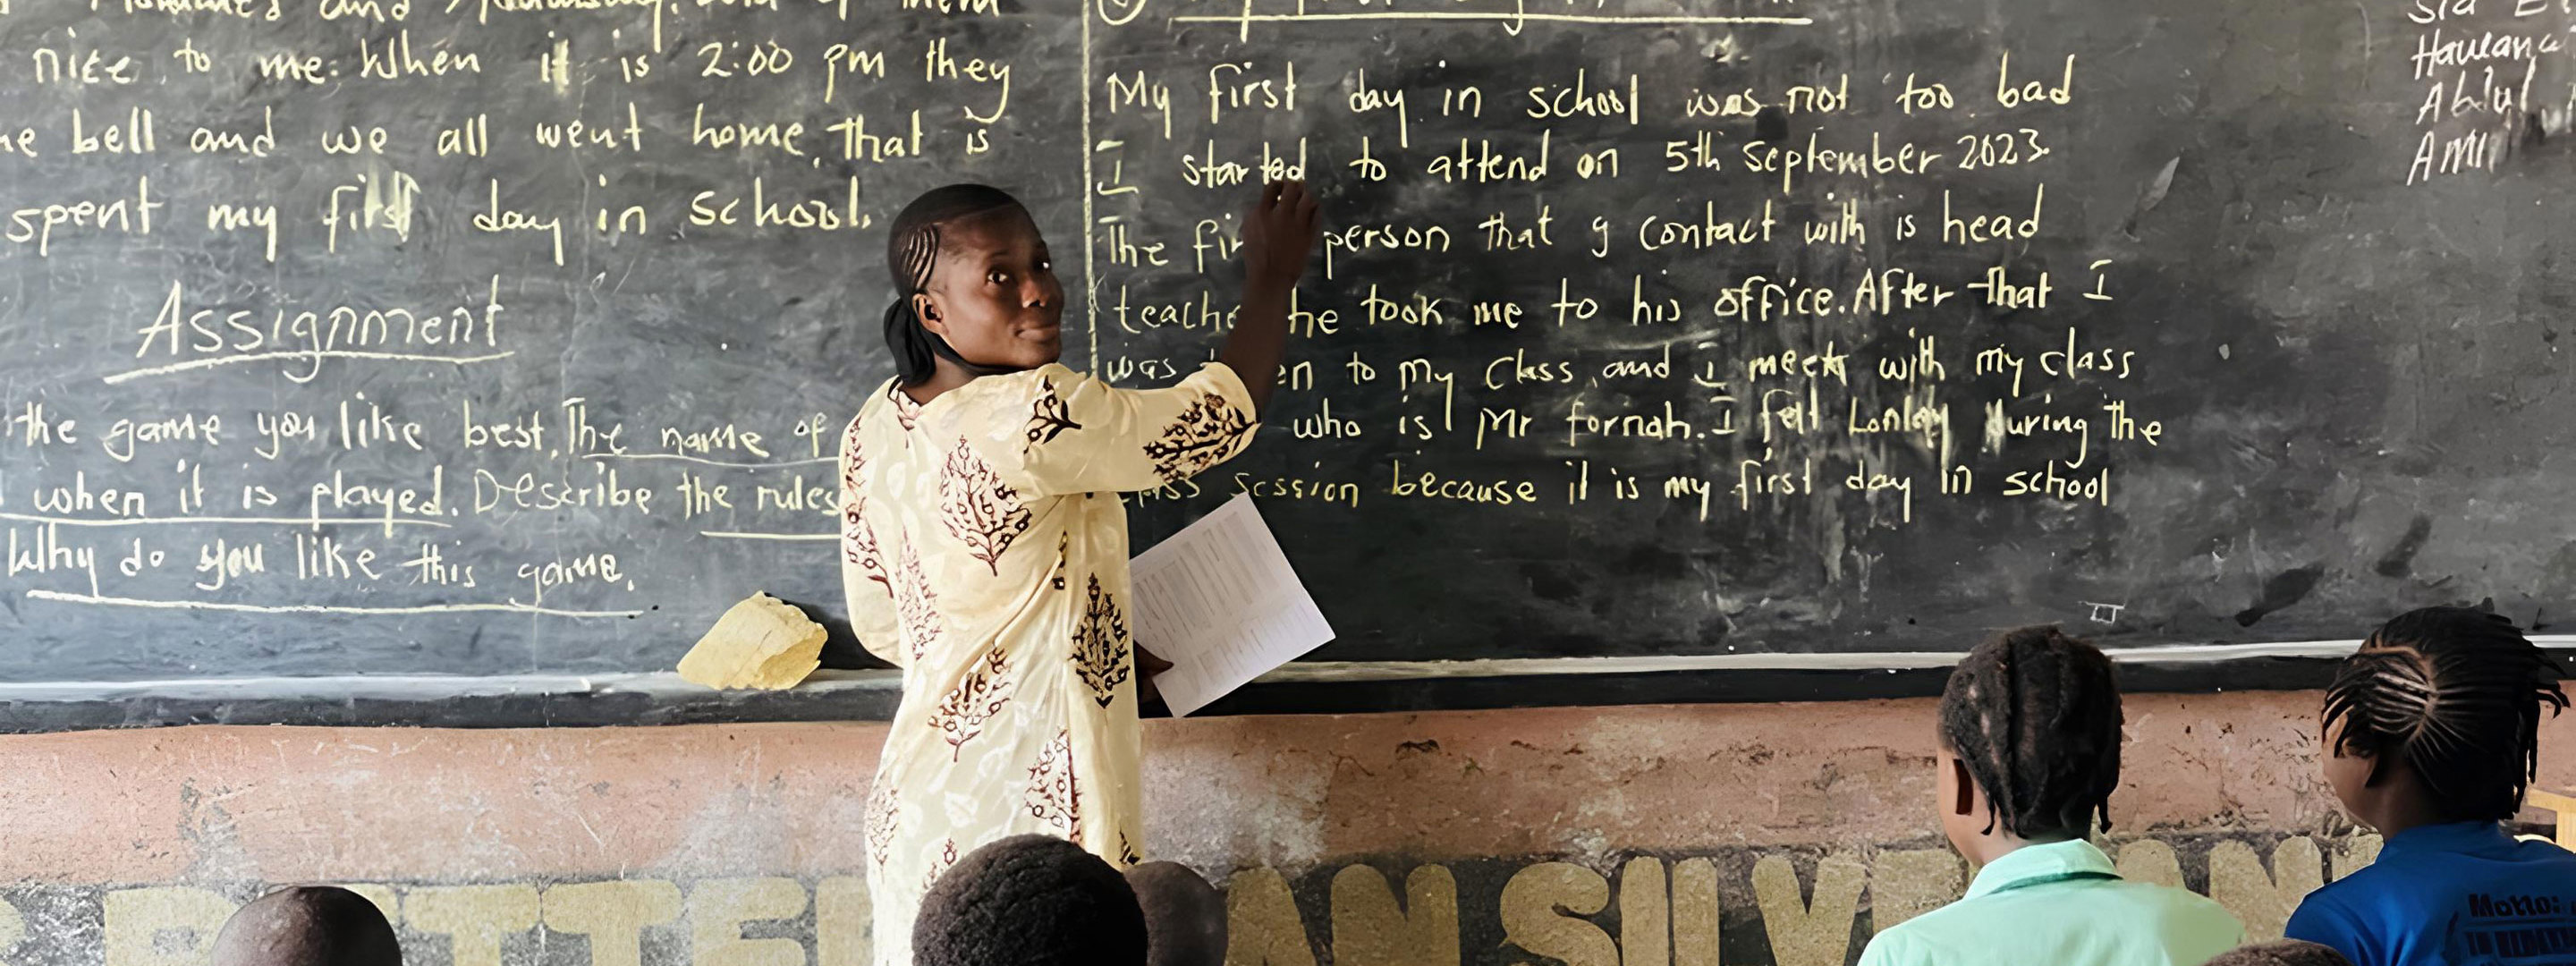 nice to me. When it is 2:00 pm they
bell and we all went home, that is
spent my first day in school.
Assignment
the game you like best. The name of
when it is played. Describe the rules
Why do you like this game.
My first day in school was not too bad
I started to attend on 5th september 2023.
The person that g contact with is head
he took me to his office. After that I
was to my Class, and I meet with my class
who is Mr fornah. I felt Lonley during the
session because it is my first day in school
Abdul
BETTER AN SILV
Motto: